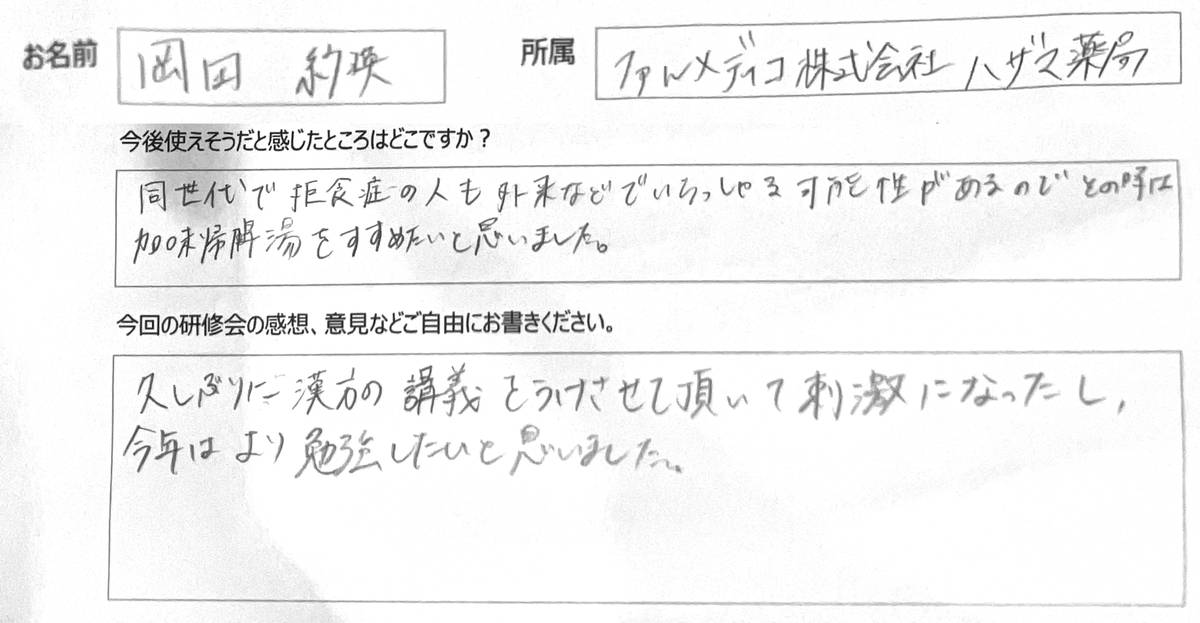 お名前 岡田 紗瑛 所属 ファルメディコ株式会社 ハザマ薬局
今後使えそうだと感じたところはどこですか？
同世代で拒食症の人も外来などでいらっしゃる可能性があるのでその時は
加味帰脾湯をすすめたいと思いました。
今回の研修会の感想、意見などご自由にお書きください。
久しぶりに漢方の講義をうけさせて頂いて刺激になったし,
今年はより勉強したいと思いました。